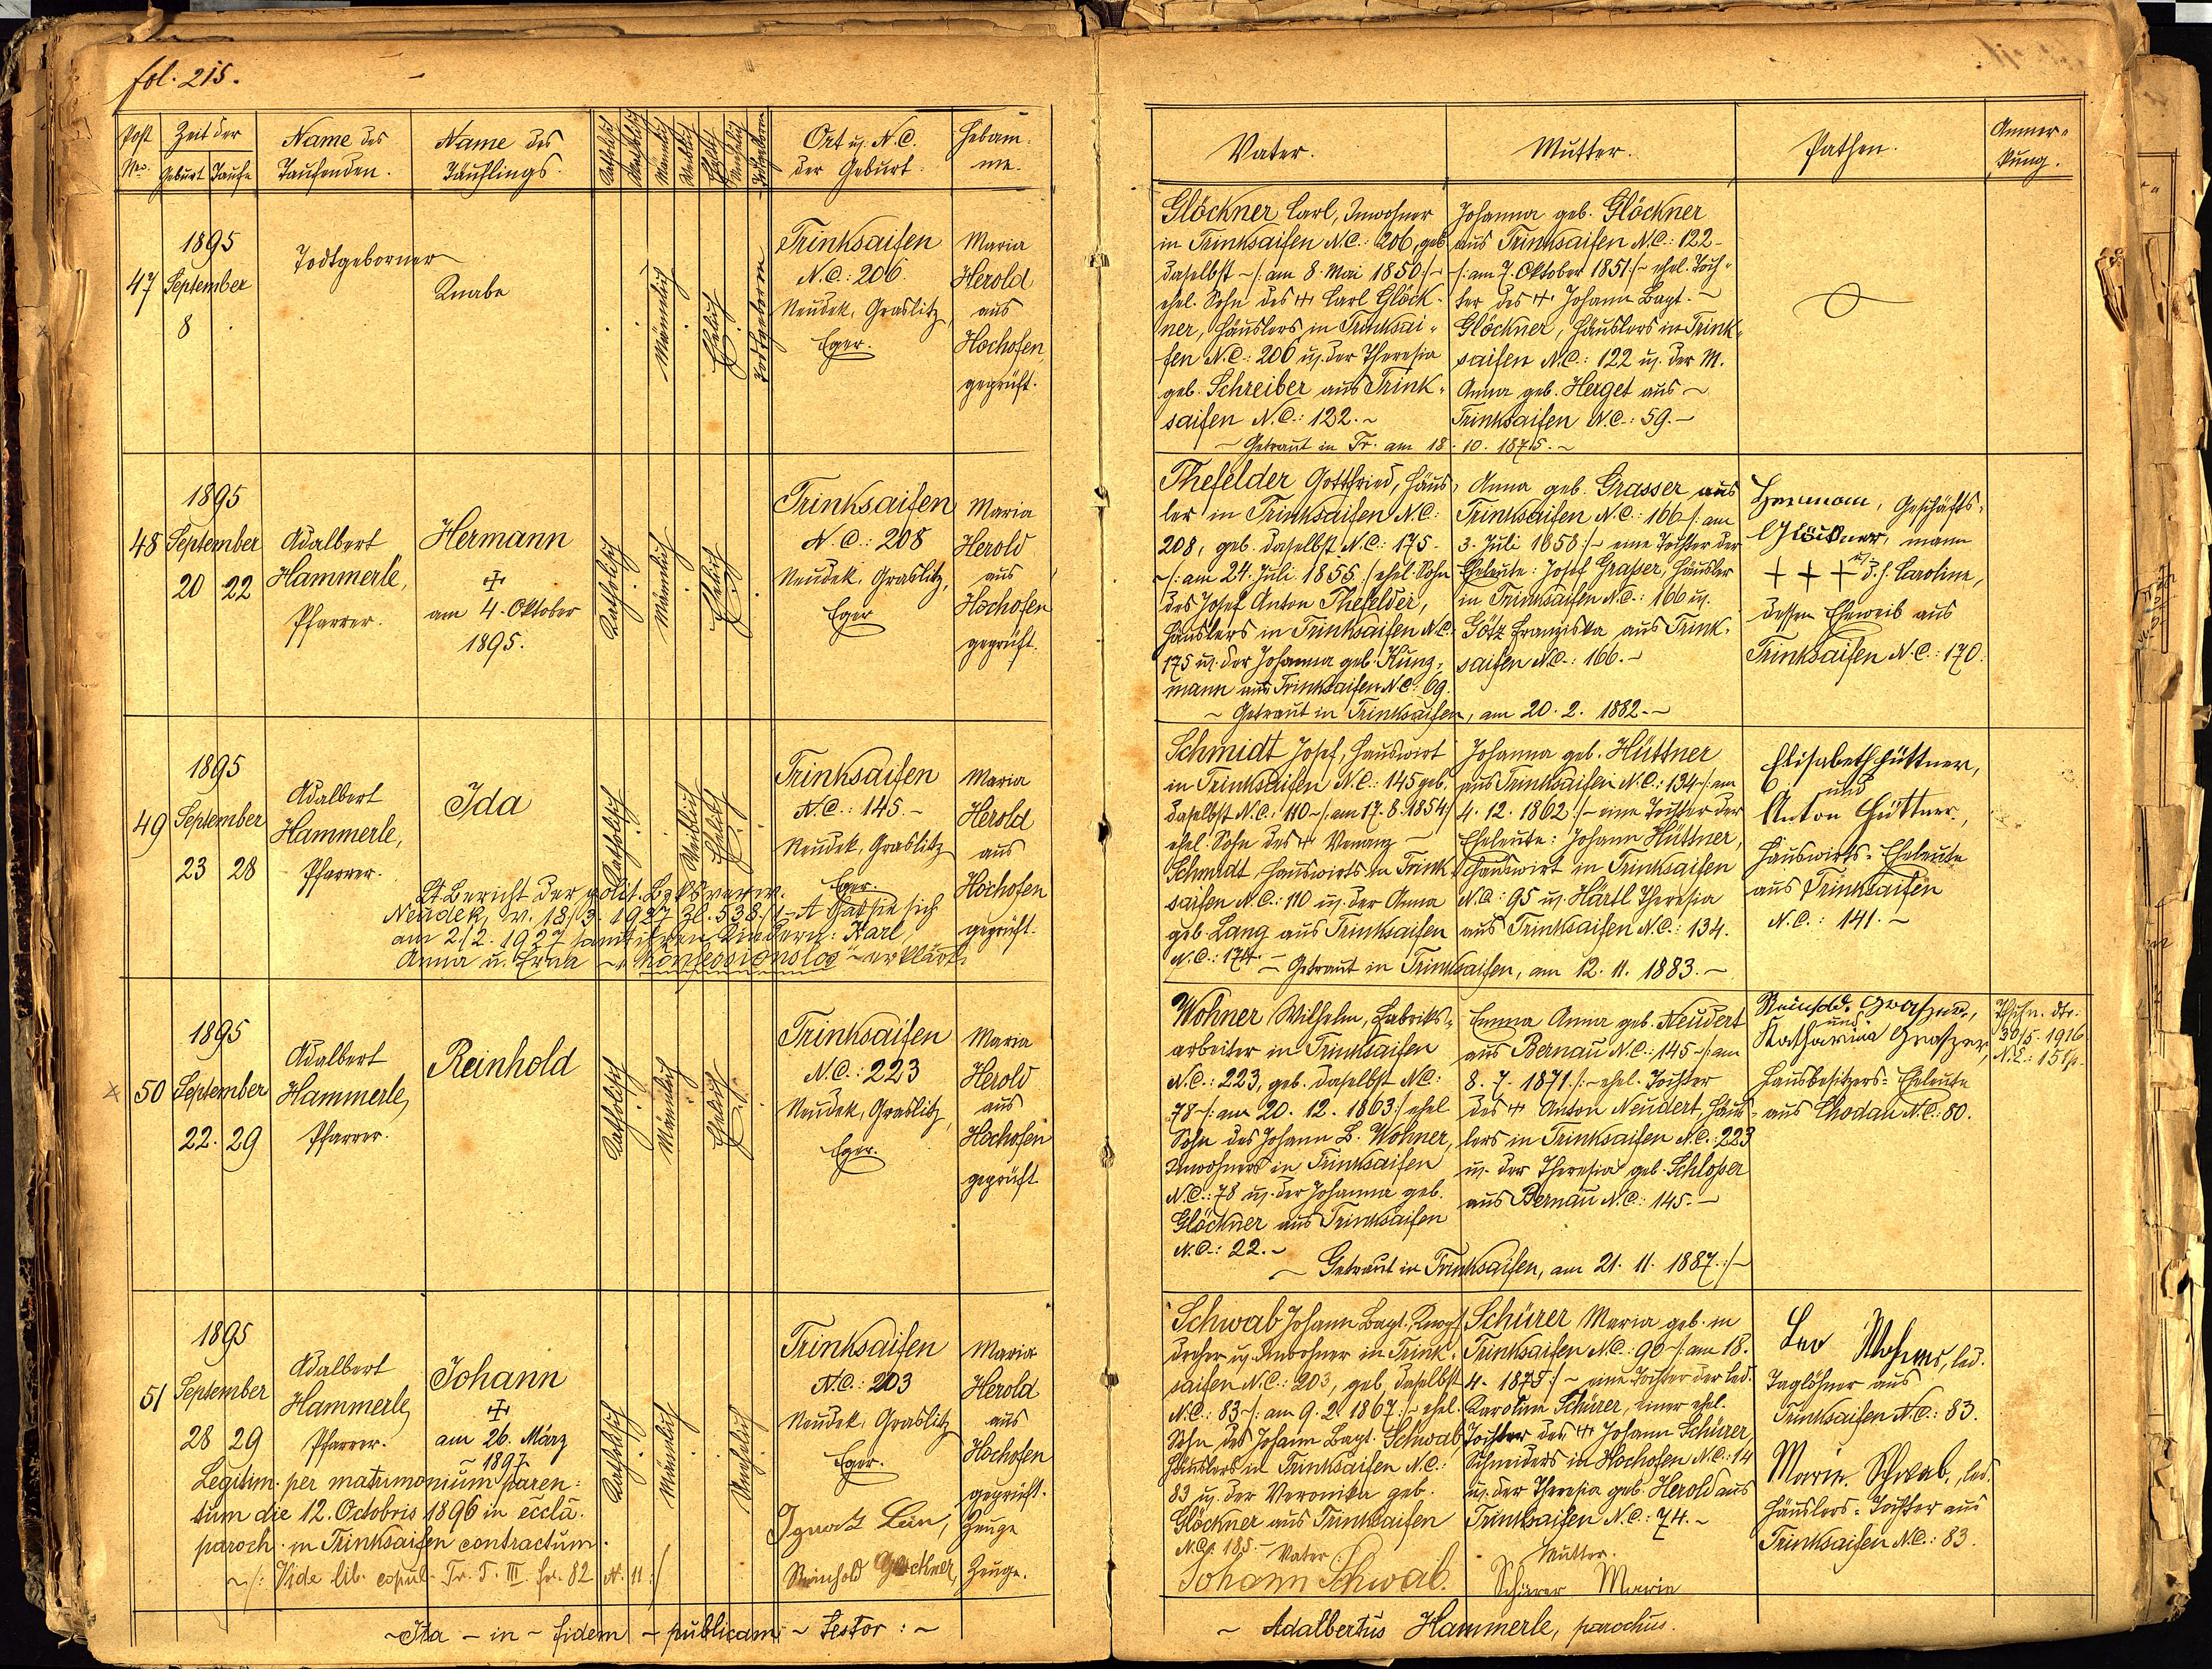 fol. 215.
Post Nro.
Zeit der
Geburt Taufe
Name des
Taufenden.
Name des
Täuflings.
Katholisch
Männlich
Weiblich
Ehelich
Unehelich
Todtgeboren
Ort u. N.C.
der Geburt.
Hebam-
me.
Vater.
Mutter.
Pathen.
Anmer-
kung.
47
1895
September
8
Todtgeborner
Knabe
Männlich
Ehelich
Todtgeboren
Trinksaifen
N.C.: 206
Neudek, Graslitz,
Eger.
Maria
Herold
aus
Hochofen,
geprüft.
Glöckner Carl, Inwohner
in Trinksaifen N.C.: 206, geb.
daselbst ~/: am 8. Mai 1850 :/~
ehel. Sohn des + Carl Glöck-
ner, Häuslers in Trinksai-
fen N.C.: 206 u. der Theresia
geb. Schreiber aus Trink-
saifen N.C.: 122. ~
Johanna geb. Glöckner
aus Trinksaifen N.C.: 122 -
/: am 7. Oktober 1851 :/~ ehel. Toch-
ter des + Johann Bapt. ~
Glöckner, Häuslers in Trink-
saifen N.C.: 122 u. der M.
Anna geb. Herget aus ~
Trinksaifen N.C.: 59. -
~ Getraut in Tr. am 18. 10. 1875. ~
48
1895
September
20 22
Adalbert
Hammerle,
Pfarrer.
Hermann
+
am 4. Oktober
1895.
Katholisch
Männlich
Ehelich
Trinksaifen
N.C.: 208
Neudek, Graslitz,
Eger
Maria
Herold
aus
Hochofen
geprüft.
Thefelder Gottfried, Häus-
ler in Trinksaifen N.C.:
208, geb. daselbst N.C.: 175 -
~/: am 24. Juli 1855 :/ ehel. Sohn
des Josef Anton Thefelder,
Häuslers in Trinksaifen N.C.
175 u. der Johanna geb. Kunz-
mann aus Trinksaifen N.C. 69.
Anna geb. Grasser aus
Trinksaifen N.C.: 166 /: am
3. Juli 1858 :/~ eine Tochter der
Eheleute: Josef Grasser, Häusler
in Trinksaifen N.C.: 166 u.
Götz Franziska aus Trink-
saifen N.C.: 166. ~
~ Getraut in Trinksaifen, am 20. 2. 1882. ~
Hermann, Geschäfts-
Glöckner, mann
+ + + d. h. Caroline,
dessen Eheweib aus
Trinksaifen N.C.: 170.
49
1895
September
23 28
Adalbert
Hammerle,
Pfarrer.
Ida
Katholisch
Weiblich
Ehelich
Trinksaifen
N.C.: 145. -
Neudek, Graslitz
Eger.
Maria
Herold
aus
Hochofen
geprüft.
Lt. Bericht der polit. Bzksverw.
Neudek, v. 18/3. 1927 Zl. 538/1 - A hat sie sich
am 2./2. 1927 samt ihren Kindern: Karl,
Anna u. Erna ~ konfessionslos ~ erklärt.
Schmidt Josef, Hauswirt
in Trinksaifen N.C.: 145 geb.
daselbst N.C.: 110 ~/: am 17. 8. 1854 :/
ehel. Sohn des + Venanz ~
Schmidt Hauswirts in Trink-
saifen N.C.: 110 u. der Anna
geb. Lang aus Trinksaifen
N.C.: 174. -
Johanna geb. Hüttner
aus Trinksaifen N.C.: 134 ~/: am
4. 12. 1862 :/~ eine Tochter der
Eheleute: Johann Hüttner,
Hauswirt in Trinksaifen
N.C.: 95 u. Härtl Theresia
aus Trinksaifen N.C.: 134.
~ Getraut in Trinksaifen, am 12. 11. 1883. ~
Elisabeth Hüttner,
und
Anton Hüttner,
Hauswirts-Eheleute
aus Trinksaifen
N.C.: 141. ~
50
1895
September
22. 29
Adalbert
Hammerle,
Pfarrer.
Reinhold
Katholisch
Männlich
Ehelich
Trinksaifen
N.C.: 223
Neudek, Graslitz,
Eger.
Maria
Herold
aus
Hochofen
geprüft
Wohner Wilhelm, Fabriks-
arbeiter in Trinksaifen
N.C.: 223, geb. daselbst N.C.:
78 ~/: am 20. 12. 1863 :/ ehel
Sohn des Johann B. Wohner,
Inwohners in Trinksaifen
N.C.: 78 u. der Johanna geb.
Glöckner aus Trinksaifen
N.C.: 22. ~
Emma Anna geb. Neudert
aus Bernau N.C.: 145 ~/: am
8. 7. 1871 :/~ ehel. Tochter
des + Anton Neudert, Häus-
lers in Trinksaifen N.C.: 223
u. der Theresia geb. Schlosser
aus Bernau N.C.: 145. -
~ Getraut in Trinksaifen, am 21. 11. 1887. :/~
Reinhold Grasser,
und
Katharina Grasser,
Hausbesitzers-Eheleute
aus Chodau N.C.: 80.
30/5. 1916
51
1895
September
28 29
Adalbert
Hammerle,
Pfarrer.
Johann
+
am 26. März
~ 1897.
Katholisch
Männlich
Unehelich
Trinksaifen
N.C.: 203
Neudek, Graslitz
Eger.
Maria
Herold
aus
Hochofen
geprüft.
Legitim. per matrimonium paren-
tum die 12. Octobris 1896 in eccla.
paroch. in Trinksaifen contractum.
~/: Vide lib. copul. Tr. T. III. fol. 82 N. 11 :/
Ignatz Lein, Zeuge
Reinhold Glöckner, Zeuge.
Schwab Johann Bapt., Knopf-
dreher u. Inwohner in Trink-
saifen N.C.: 203, geb. daselbst
N.C.: 83 ~/: am 9. 2. 1867 :/~ ehel.
Sohn des Johann Bapt. Schwab
Häuslers in Trinksaifen N.C.:
83 u. der Veronika geb.
Glöckner aus Trinksaifen
N.C. 188. -
Vater
Johann Schwab.
Schürer Maria geb. in
Trinksaifen N.C.: 90 ~/: am 18.
4. 1875 :/~ eine Tochter der led.
Karoline Schürer, einer ehel.
Tochter des + Johann Schürer,
Schneiders in Hochofen N.C.: 14
u. der Theresia geb. Herold aus
Trinksaifen N.C.: 74. ~
Mutter.
Schürer Marie
Leo Wohner, led.
Taglöhner aus
Trinksaifen N.C.: 83.
Marie Schwab, led.
Häuslers-Tochter aus
Trinksaifen N.C.: 83.
~ Ita - in - fidem - publicam ~ testor : ~
~ Adalbertus Hammerle, parochus.